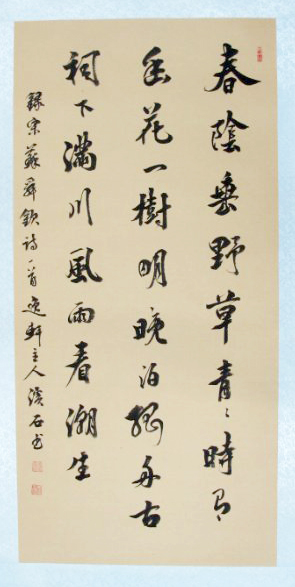 春陰垂野草青々時有
幽花一樹明晚泊孤舟古
祠下滿川風雨看潮生
錄宋蘇舜欽詩一首逸軒主人石书